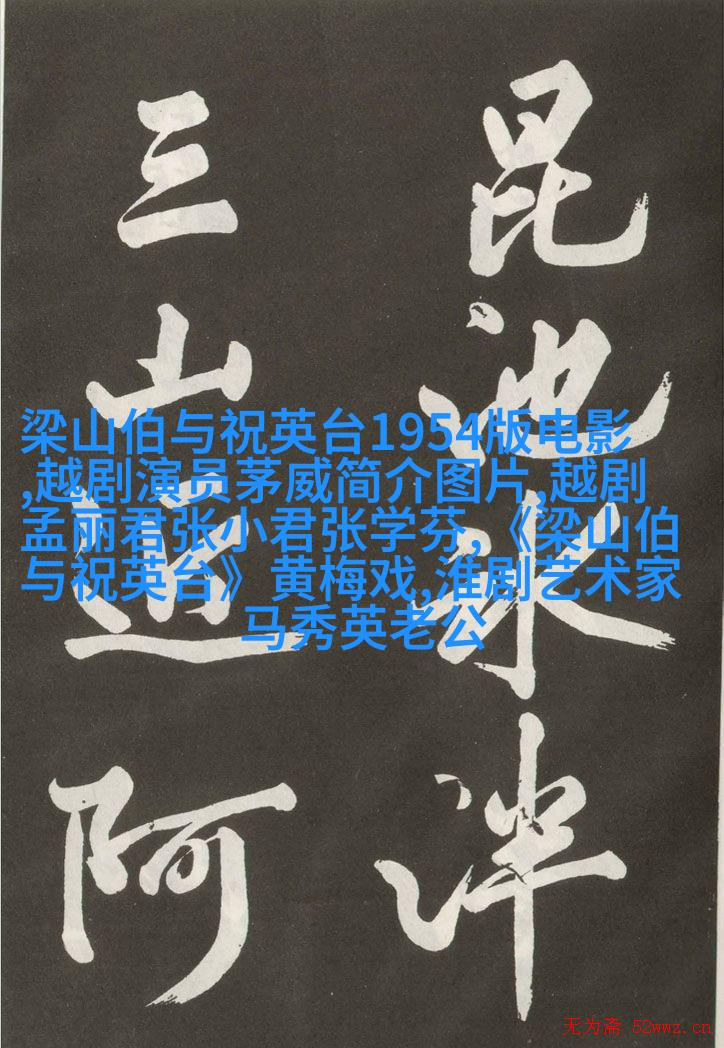 昆池泮
三山阿
梁山伯与祝英台1954版电影
,越剧演员茅威简介图片,越剧
孟丽君张小君张学芬,《梁山伯
与祝英台》黄梅戏,淮剧艺术家
马秀英老公
无为斋 52wwz.cn